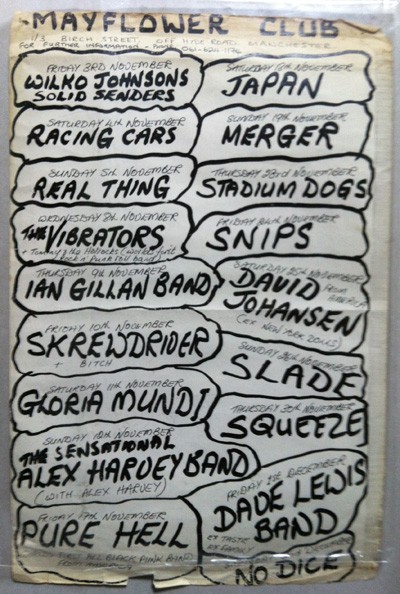 MAYFLOWER CLUB
1/3 BIRCH STREET, OFF HYDE ROAD MANCHESTER
FOR FURTHER INFORMATION
FRIDAY 3RD NOVEMBER
WILKO JOHNSONS
SOLID SENDERS
SATURDAY 4TH NOVEMBER
RACING CARS
SUNDAY 5TH NOVEMBER
REAL THING
WEDNESDAY 8TH NOVEMBER
THE VIBRATORS
THURSDAY 9TH NOVEMBER
IAN GILLAN BAND
FRIDAY 10TH NOVEMBER
SKREWDRIDER
+ BITCH
SATURDAY 11TH NOVEMBER
GLORIA MUNDI
SUNDAY 12TH NOVEMBER
THE SENSATIONAL
ALEX HARVEY BAND
(WITH ALEX HARVEY)
FRIDAY 17TH NOVEMBER
PURE HELL
ALL BLACK PUNK BAND
SATURDAY 18TH NOVEMBER
JAPAN
SUNDAY 19TH NOVEMBER
MERGER
THURSDAY 23RD NOVEMBER
STADIUM DOGS
FRIDAY 24TH NOVEMBER
SNIPS
SATURDAY 25TH NOVEMBER
DAVID FROM AMERICA
JOHANSEN
(EX NEW YORK DOLLS)
SUNDAY 26TH NOVEMBER
SLADE
THURSDAY 30TH NOVEMBER
SQUEEZE
FRIDAY 1ST DECEMBER
DAVE LEWIS
BAND
DECEMBER
NO DICE